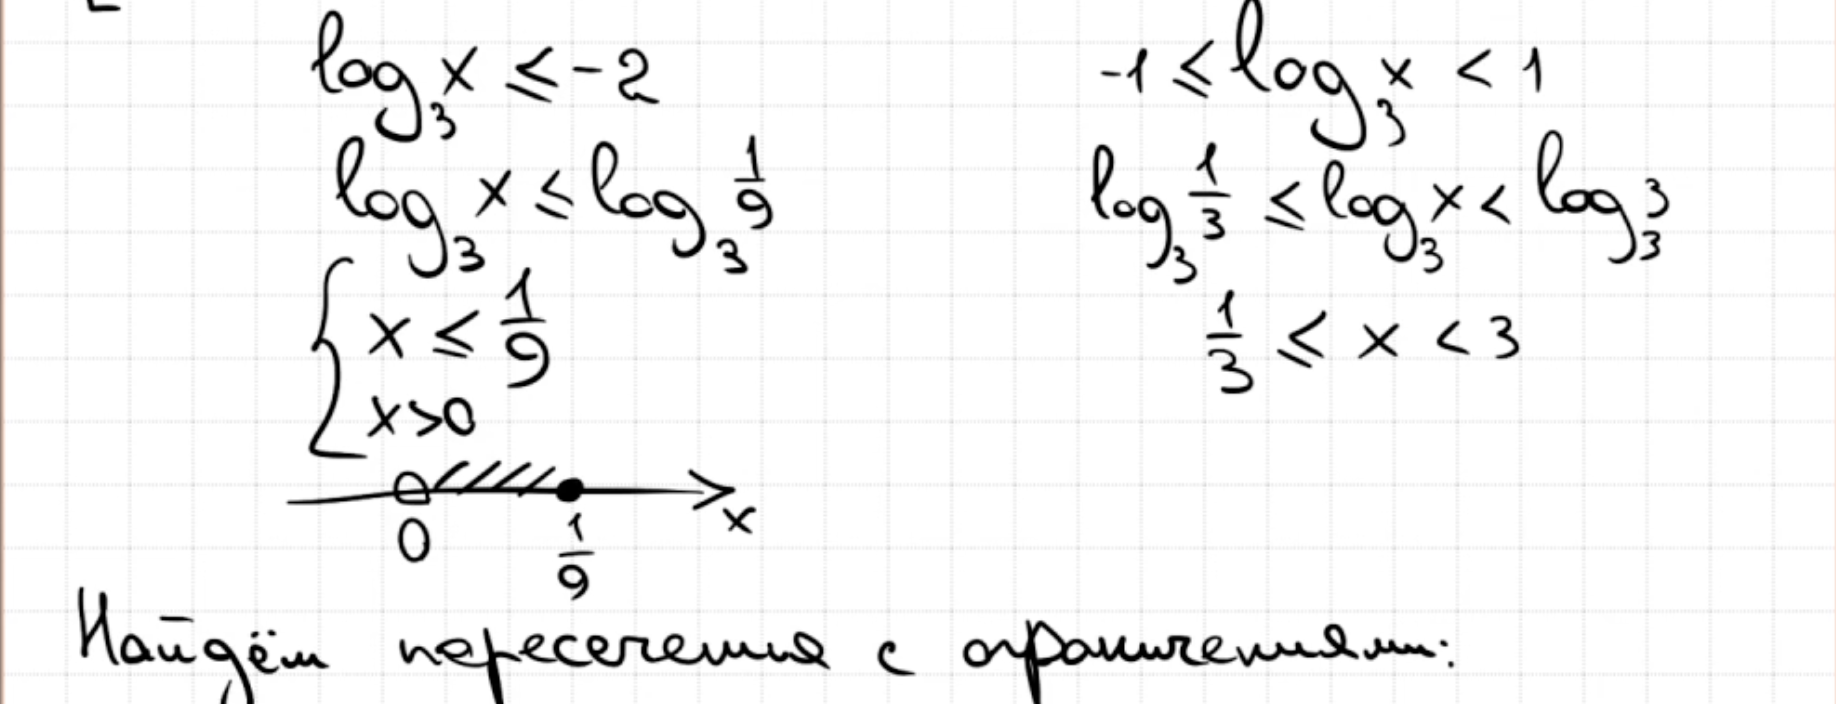 log₃ x ≤ -2
log₃ x ≤ log₃ 1/9
{ x ≤ 1/9
x > 0
0 1/9 x
-1 ≤ log₃ x < 1
log₃ 1/3 ≤ log₃ x < log₃ 3
1/3 ≤ x < 3
Найдём пересечения с ограничениями: